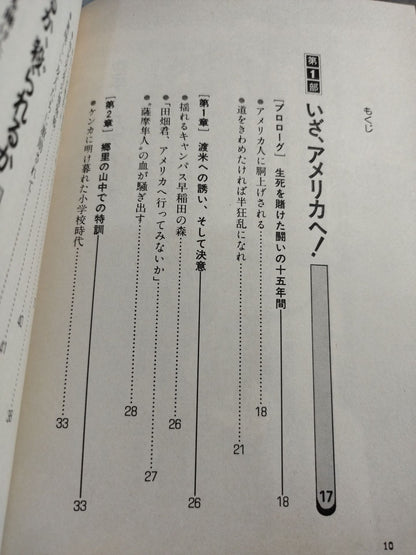 もくじ
第1部 いざ、アメリカへ! 17
[プロローグ] 生死を賭けた闘いの十五年間 18
●アメリカ人に胴上げされる 18
●道をきわめたければ半狂乱になれ 21
[第1章] 渡米への誘い、そして決意 26
●揺れるキャンパス早稲田の森 26
●「田畑君、アメリカへ行ってみないか」 27
●“薩摩隼人”の血が騒ぎ出す 28
[第2章] 郷里の山中での特訓 33
●ケンカに明け暮れた小学校時代 33
40
41
10